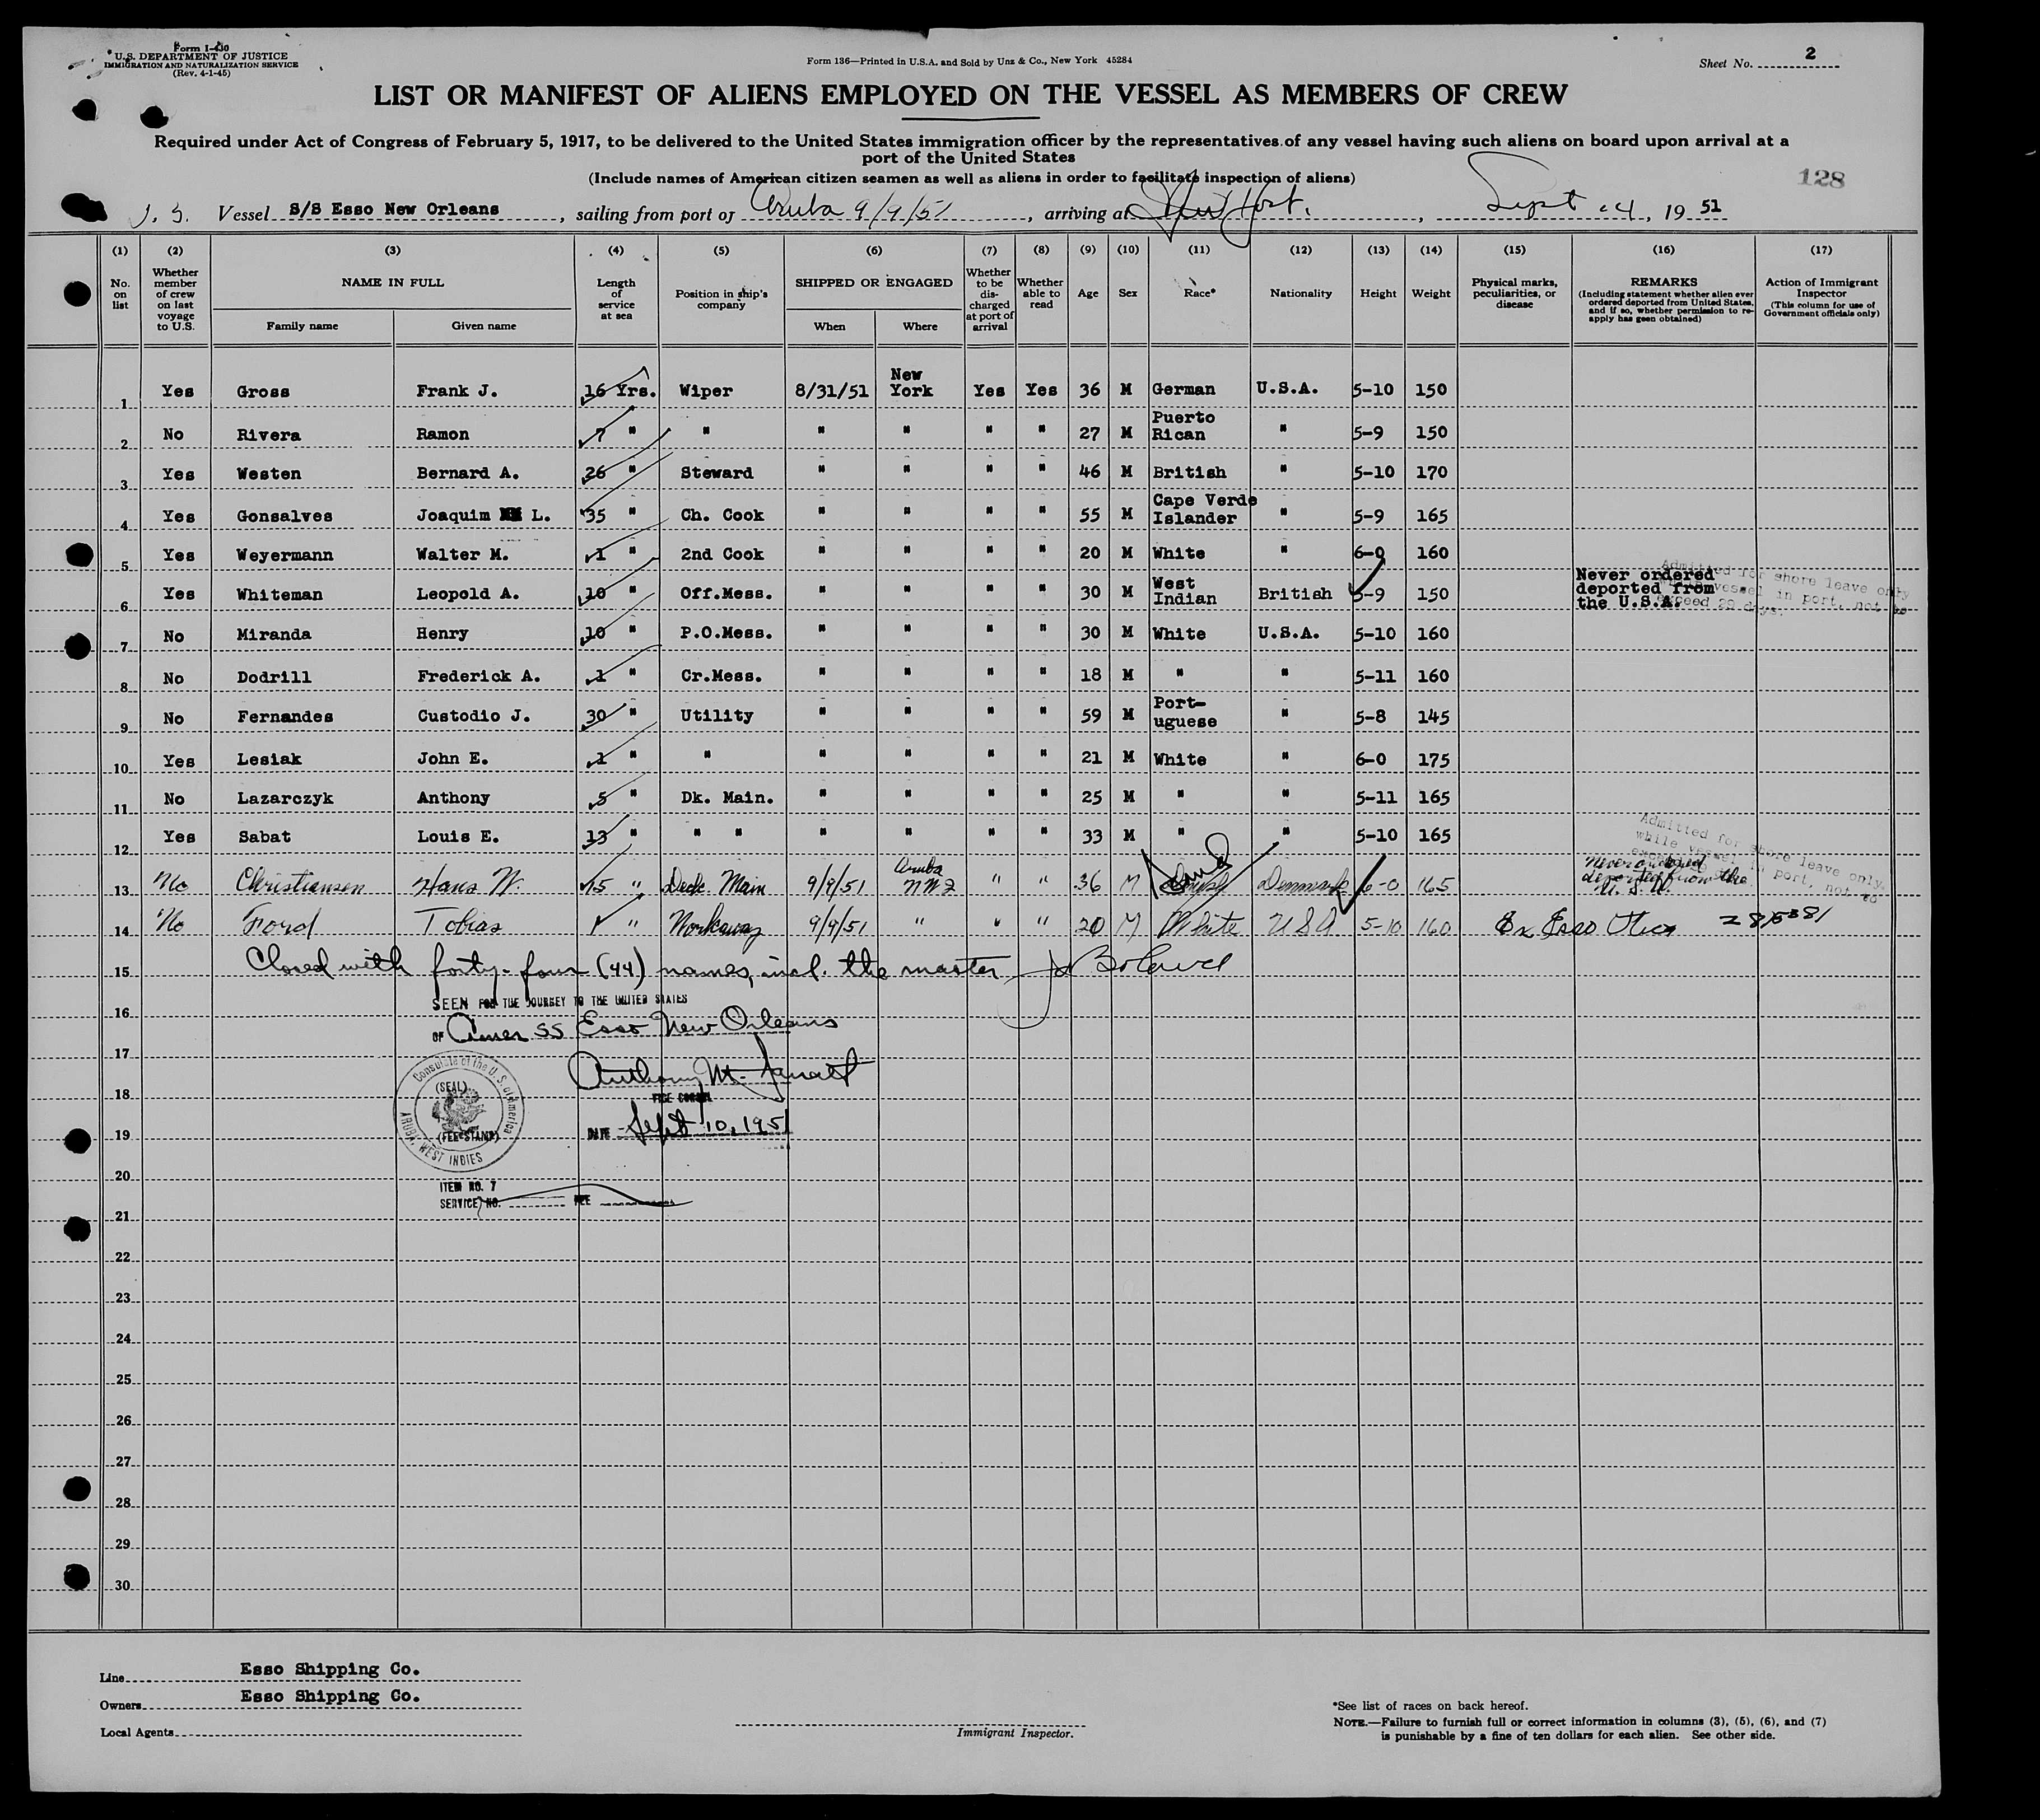 Form I-480
U.S. DEPARTMENT OF JUSTICE
IMMIGRATION AND NATURALIZATION SERVICE
(Rev. 4-1-45)
Form 136—Printed in U.S.A. and Sold by Unz & Co., New York 45284
Sheet No. 2
LIST OR MANIFEST OF ALIENS EMPLOYED ON THE VESSEL AS MEMBERS OF CREW
Required under Act of Congress of February 5, 1917, to be delivered to the United States immigration officer by the representatives of any vessel having such aliens on board upon arrival at a
port of the United States
(Include names of American citizen seamen as well as aliens in order to facilitate inspection of aliens)
128
Vessel S/S Esso New Orleans, sailing from port of Aruba 9/9/51, arriving at Sept 14, 19 51
(1) (2) (3) (4) (5) (6) (7) (8) (9) (10) (11) (12) (13) (14) (15) (16) (17)
No. on list
Whether member of crew on last voyage to U.S.
NAME IN FULL
Family name Given name
Length of service at sea
Position in ship's company
SHIPPED OR ENGAGED
When Where
Whether to be discharged at port of arrival
Whether able to read
Age Sex Race* Nationality Height Weight
Physical marks, peculiarities, or disease
REMARKS
(Including statement whether alien ever ordered deported from United States, and if so, whether permission to re-apply has been obtained)
Action of Immigrant Inspector
(This column for use of Government officials only)
1 Yes Gross Frank J. 16 Yrs. Wiper 8/31/51 New York Yes Yes 36 M German U.S.A. 5-10 150
2 No Rivera Ramon 7 " " " " " " 27 M Puerto Rican " 5-9 150
3 Yes Westen Bernard A. 26 " Steward " " " " 46 M British " 5-10 170
4 Yes Gonsalves Joaquim L. 35 " Ch. Cook " " " " 55 M Cape Verde Islander " 5-9 165
5 Yes Weyermann Walter M. 1 " 2nd Cook " " " " 20 M White " 6-0 160
6 Yes Whiteman Leopold A. 10 " Off.Mess. " " " " 30 M West Indian British 5-9 150 Never ordered deported from the U.S.A.
Admitted for shore leave only while vessel in port, not to exceed 29 days.
7 No Miranda Henry 10 " P.O.Mess. " " " " 30 M White U.S.A. 5-10 160
8 No Dodrill Frederick A. 1 " Cr.Mess. " " " " 18 M " " 5-11 160
9 No Fernandes Custodio J. 30 " Utility " " " " 59 M Port-uguese " 5-8 145
10 Yes Lesiak John E. 1 " " " " " " 21 M White " 6-0 175
11 No Lazarczyk Anthony 5 " Dk. Main. " " " " 25 M " " 5-11 165
12 Yes Sabat Louis E. 13 " " " " " " " 33 M " " 5-10 165
13 No Christiansen Hans W. 15 " Deck Main 9/9/51 Aruba NWI " " 36 M Denmark 6-0 165 Never ordered deported from the U.S.A.
Admitted for shore leave only while vessel in port, not to
14 No Ford Tobias 1 " Workaway 9/9/51 " " " 20 M White USA 5-10 160 Ex Esso Utica
15 Closed with forty-four (44) names, incl. the master
16 SEEN FOR THE JOURNEY TO THE UNITED STATES
OF Amer SS Esso New Orleans
17
18 Anthony M.
VICE CONSUL
19 DATE Sept 10, 1951
Consulate of the U. S. of America
(SEAL)
(FEE STAMP)
ARUBA, WEST INDIES
20
ITEM NO. 7
SERVICE NO. FEE
21
22
23
24
25
26
27
28
29
30
Line Esso Shipping Co.
Owners Esso Shipping Co.
Local Agents
Immigrant Inspector.
*See list of races on back hereof.
NOTE.—Failure to furnish full or correct information in columns (3), (5), (6), and (7)
is punishable by a fine of ten dollars for each alien. See other side.